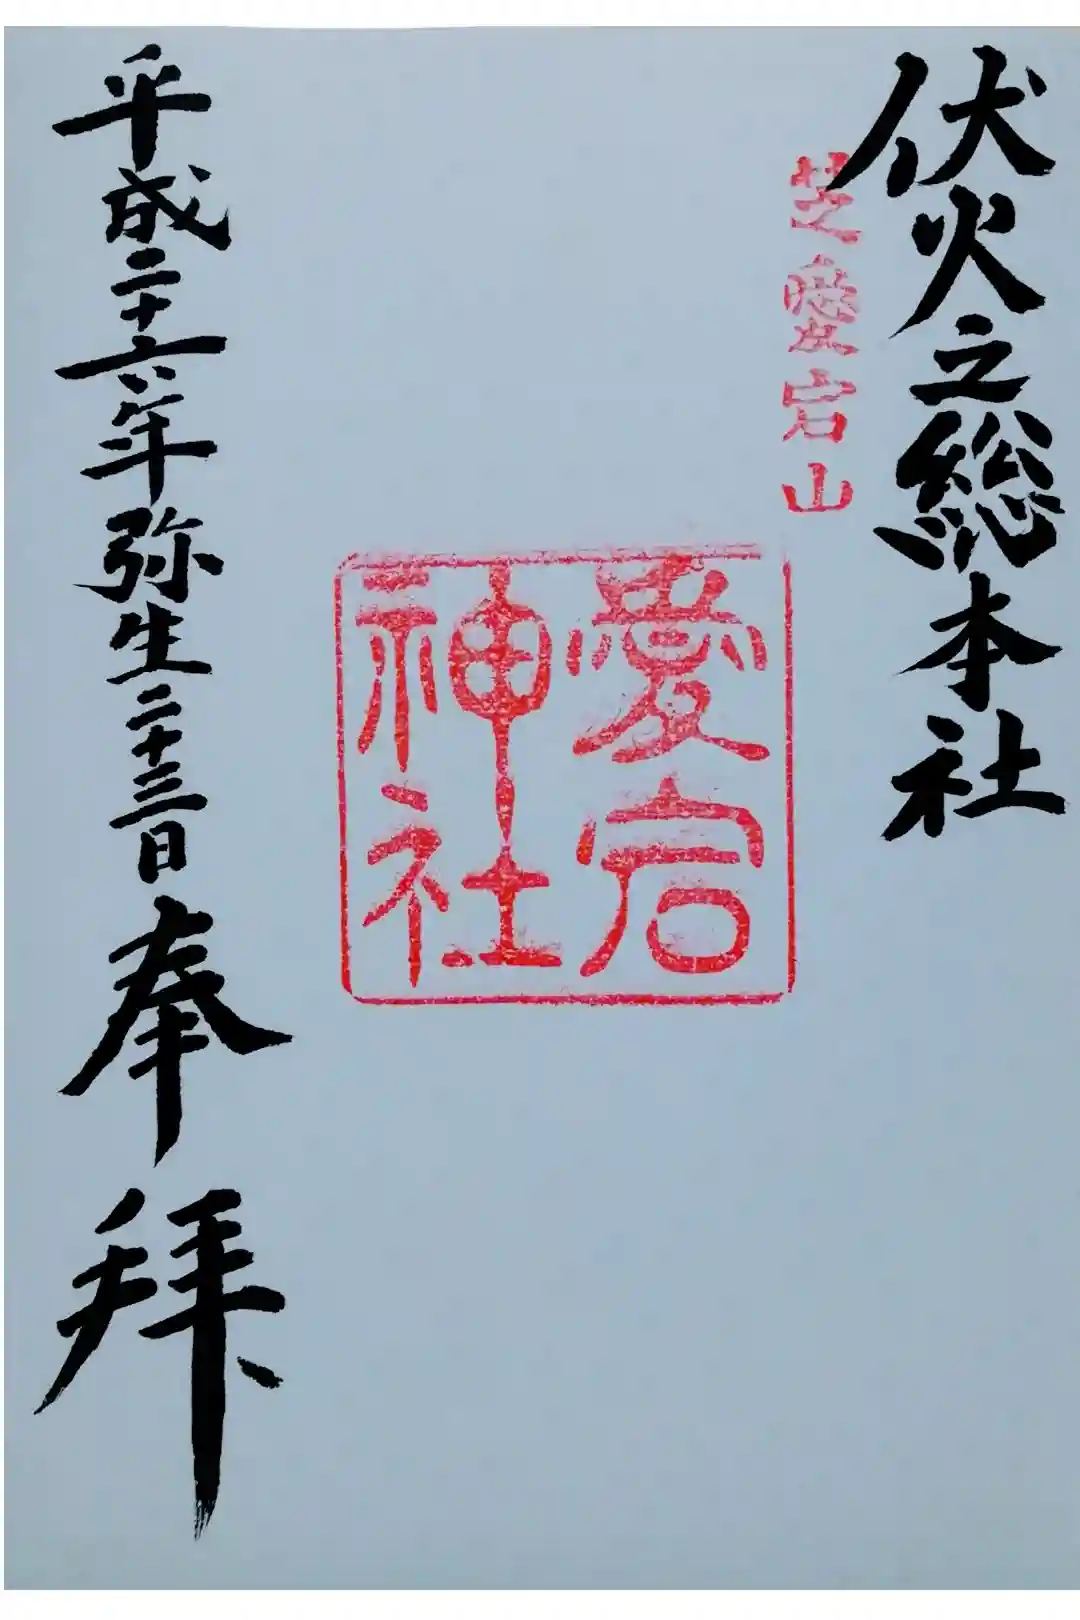 伏火之総本社
芝愛宕山
愛宕
神社
平成二十六年弥生二十三日奉拝